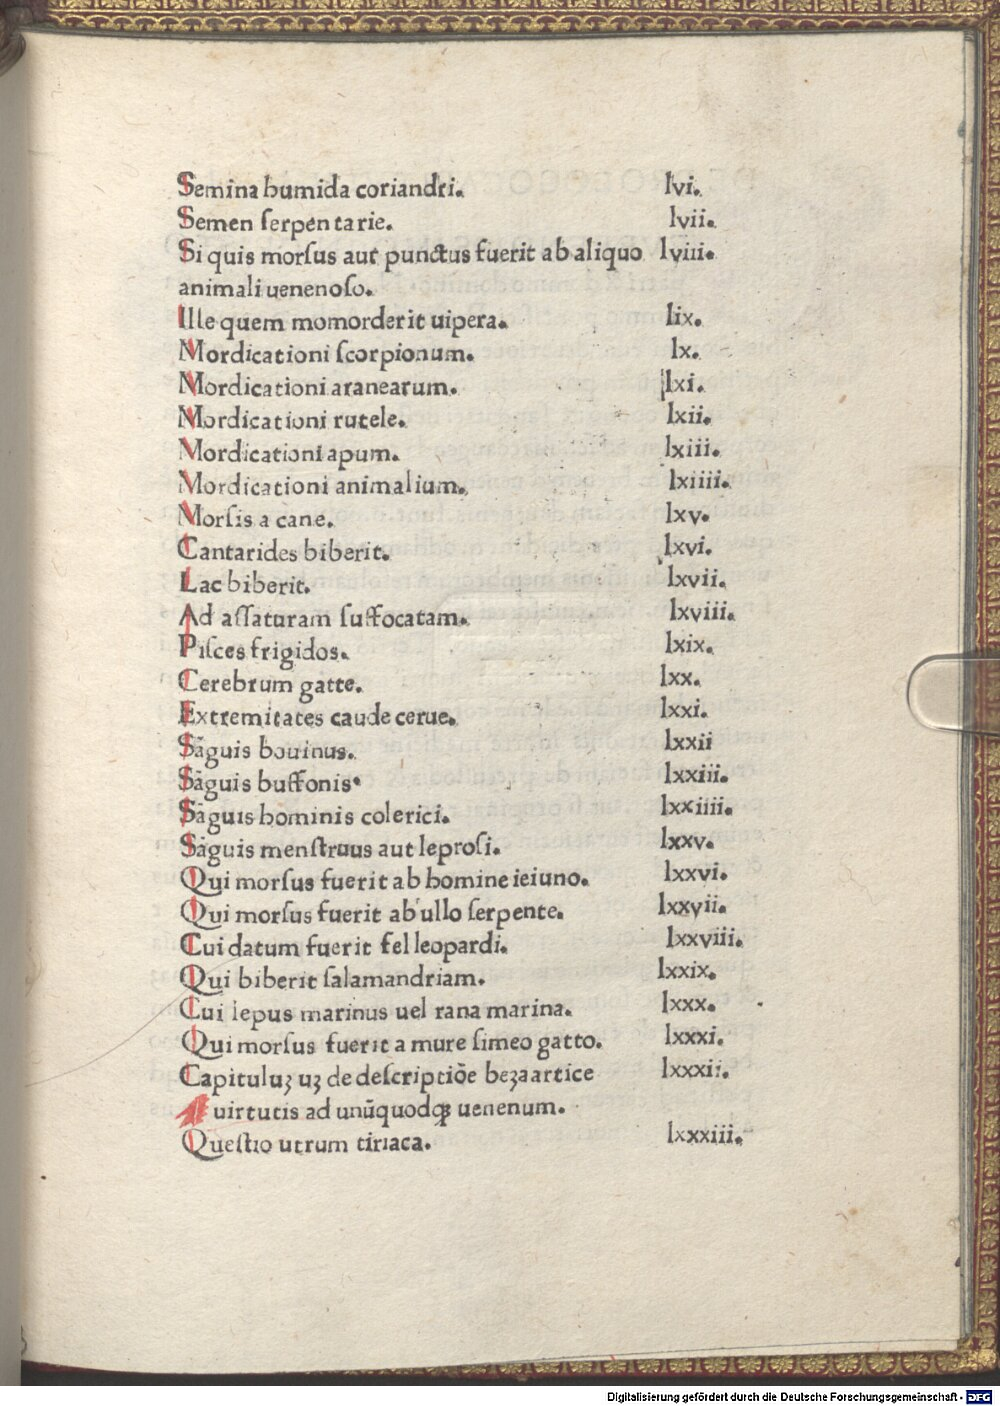 Semina humida coriandri. lvi.
Semen ſerpentarie. lvii.
Si quis morſus aut punctus fuerit ab aliquo lviii.
animali uenenoſo.
Ille quem momorderit uipera. lix.
Mordicationi ſcorpionum. lx.
Mordicationi aranearum. lxi.
Mordicationi rutele. lxii.
Mordicationi apum. lxiii.
Mordicationi animalium. lxiiii.
Morſis a cane. lxv.
Cantarides biberit. lxvi.
Lac biberit. lxvii.
Ad aſſaturam ſuffocatam. lxviii.
Piſces frigidos. lxix.
Cerebrum gatte. lxx.
Extremitates caude cerue. lxxi.
Sãguis bouinus. lxxii
Sãguis buffonis. lxxiii.
Sãguis hominis colerici. lxxiiii.
Sãguis menſtruus aut leproſi. lxxv.
Qui morſus fuerit ab homine ieiuno. lxxvi.
Qui morſus fuerit ab ullo ſerpente. lxxvii.
Cui datum fuerit fel leopardi. lxxviii.
Qui biberit ſalamandriam. lxxix.
Cui lepus marinus uel rana marina. lxxx.
Qui morſus fuerit a mure ſimeo gatto. lxxxi.
Capituluꝫ uꝫ de deſcriptiõe beꝫaartice lxxxii.
uirtutis ad unũquodqꝫ uenenum.
Queſtio utrum tiriaca. lxxxiii.
Digitalisierung gefördert durch die Deutsche Forschungsgemeinschaft - DFG